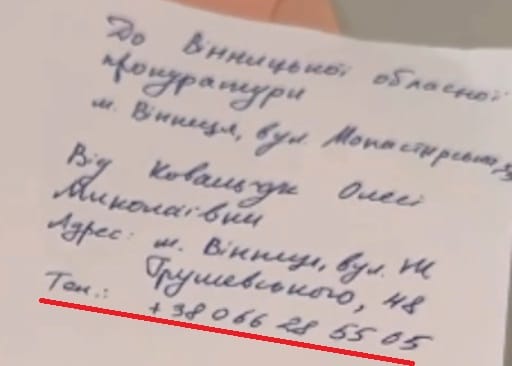 До Вінницької обласної
прокуратури
м. Вінниця, вул. Монастирська,
Від Ковальчук Олесі
Миколаївни
Адрес: м. Вінниця, вул. М
Грушевського, 48
Тел.: +38 066 28 55 05